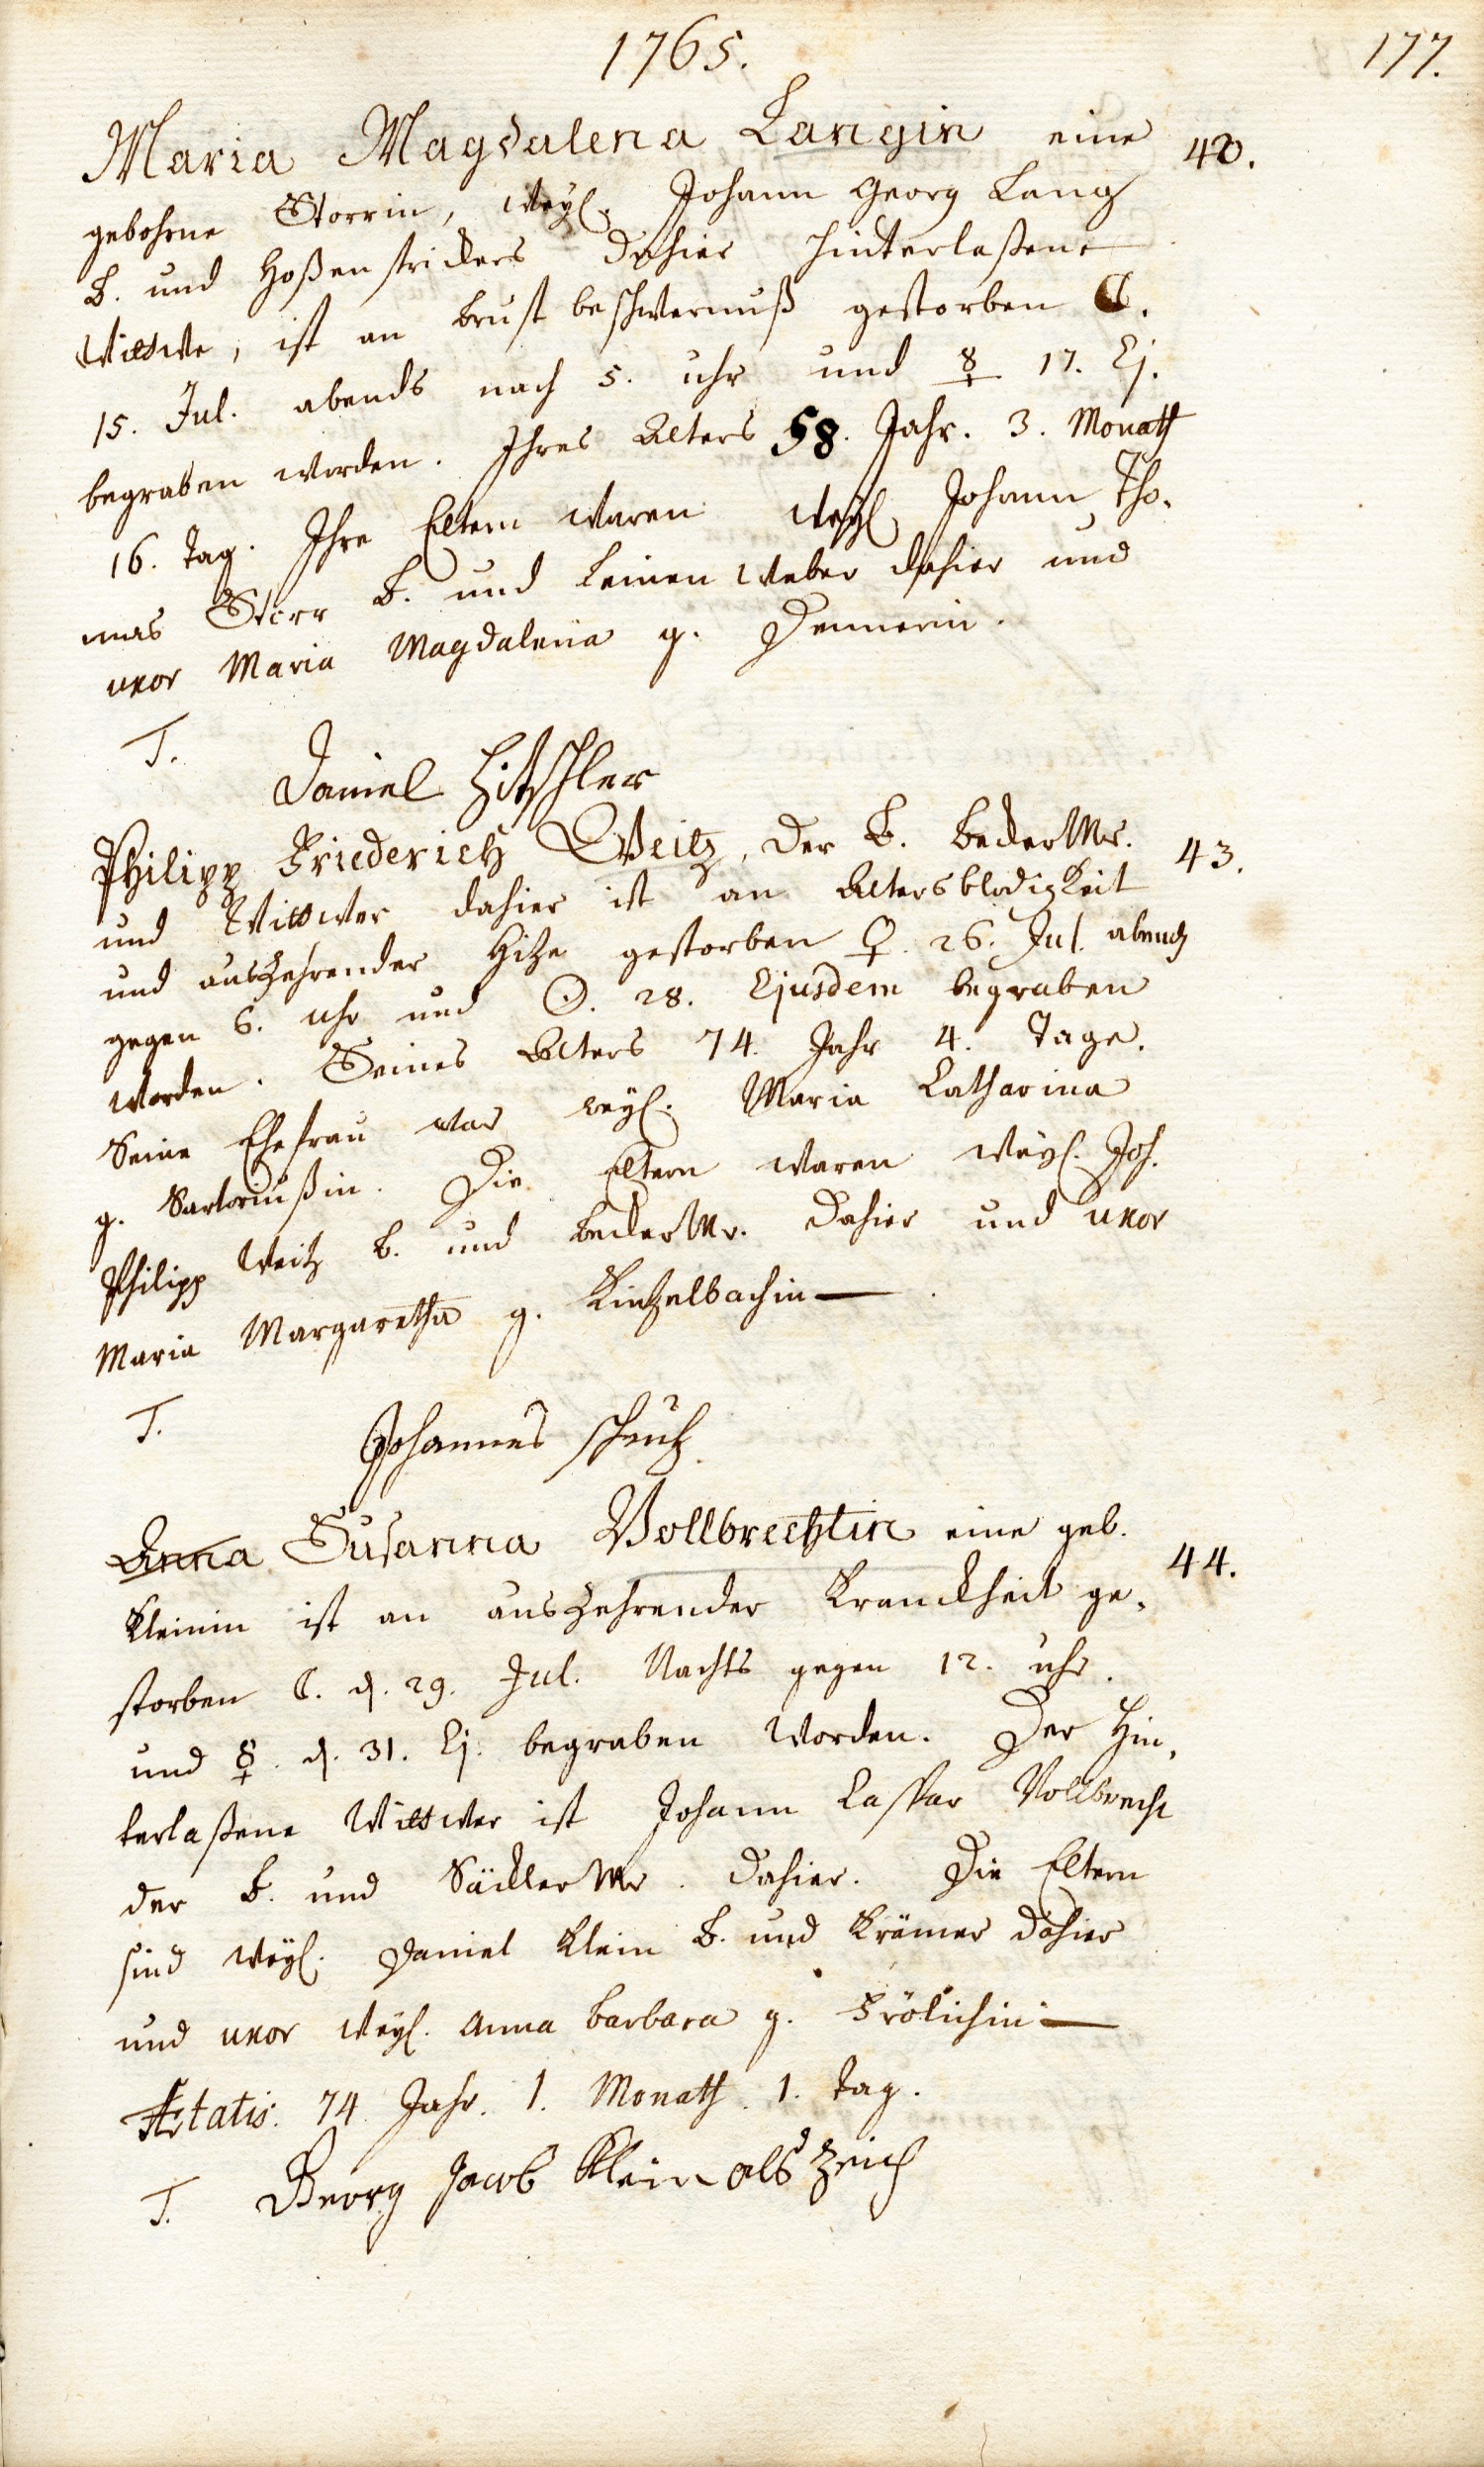 1765.
177.
Maria Magdalena Langin eine
42.
gebohrne Storrin, weyl. Johann Georg Lang
B. und Hoßenstrickers dahier hinterlaßene
Wittwe, ist an Brustbeschwernuß gestorben ☾.
15. Jul. abends nach 5. uhr und ☿ 17. Ej.
begraben worden. Ihres Alters 58. Jahr. 3. Monath
16. Tag. Ihre Eltern waren weyl. Johann Tho-
mas Storr B. und Leinenweber dahier und
uxor Maria Magdalena g. Dennerin.
T.
Daniel Hitschler
Philipp Friederich Weitz, der B. BeckerMr.
43.
und Wittwer dahier ist an Altersblödigkeit
und auszehrender Hitze gestorben ♀. 26. Jul. abends
gegen 6. uhr und ☉. 28. Ejusdem begraben
worden. Seines Alters 74. Jahr 4. Tage.
Seine Ehefrau war weyl. Maria Catharina
g. Sartoriußin. Die Eltern waren weyl. Joh.
Philipp Weitz B. und BeckerMr. dahier und uxor
Maria Margaretha g. Kintzelbachin —
T.
Johannes
Anna Susanna Vollbrechtin eine geb.
44.
Kleinin ist an auszehrender Kranckheit ge-
storben ☾. d. 29. Jul. Nachts gegen 12. uhr.
und ☿. d. 31. Ej. begraben worden. Der Hin-
terlaßene Wittwer ist Johann Caspar Vollbrecht
der B. und SäcklerMr. dahier. Die Eltern
sind weyl. Daniel Klein B. und Krämer dahier
und uxor weyl. Anna Barbara g. Frölichin —
Ætatis. 74. Jahr. 1. Monath. 1. Tag.
T. Georg Jacob Klein als Zeich